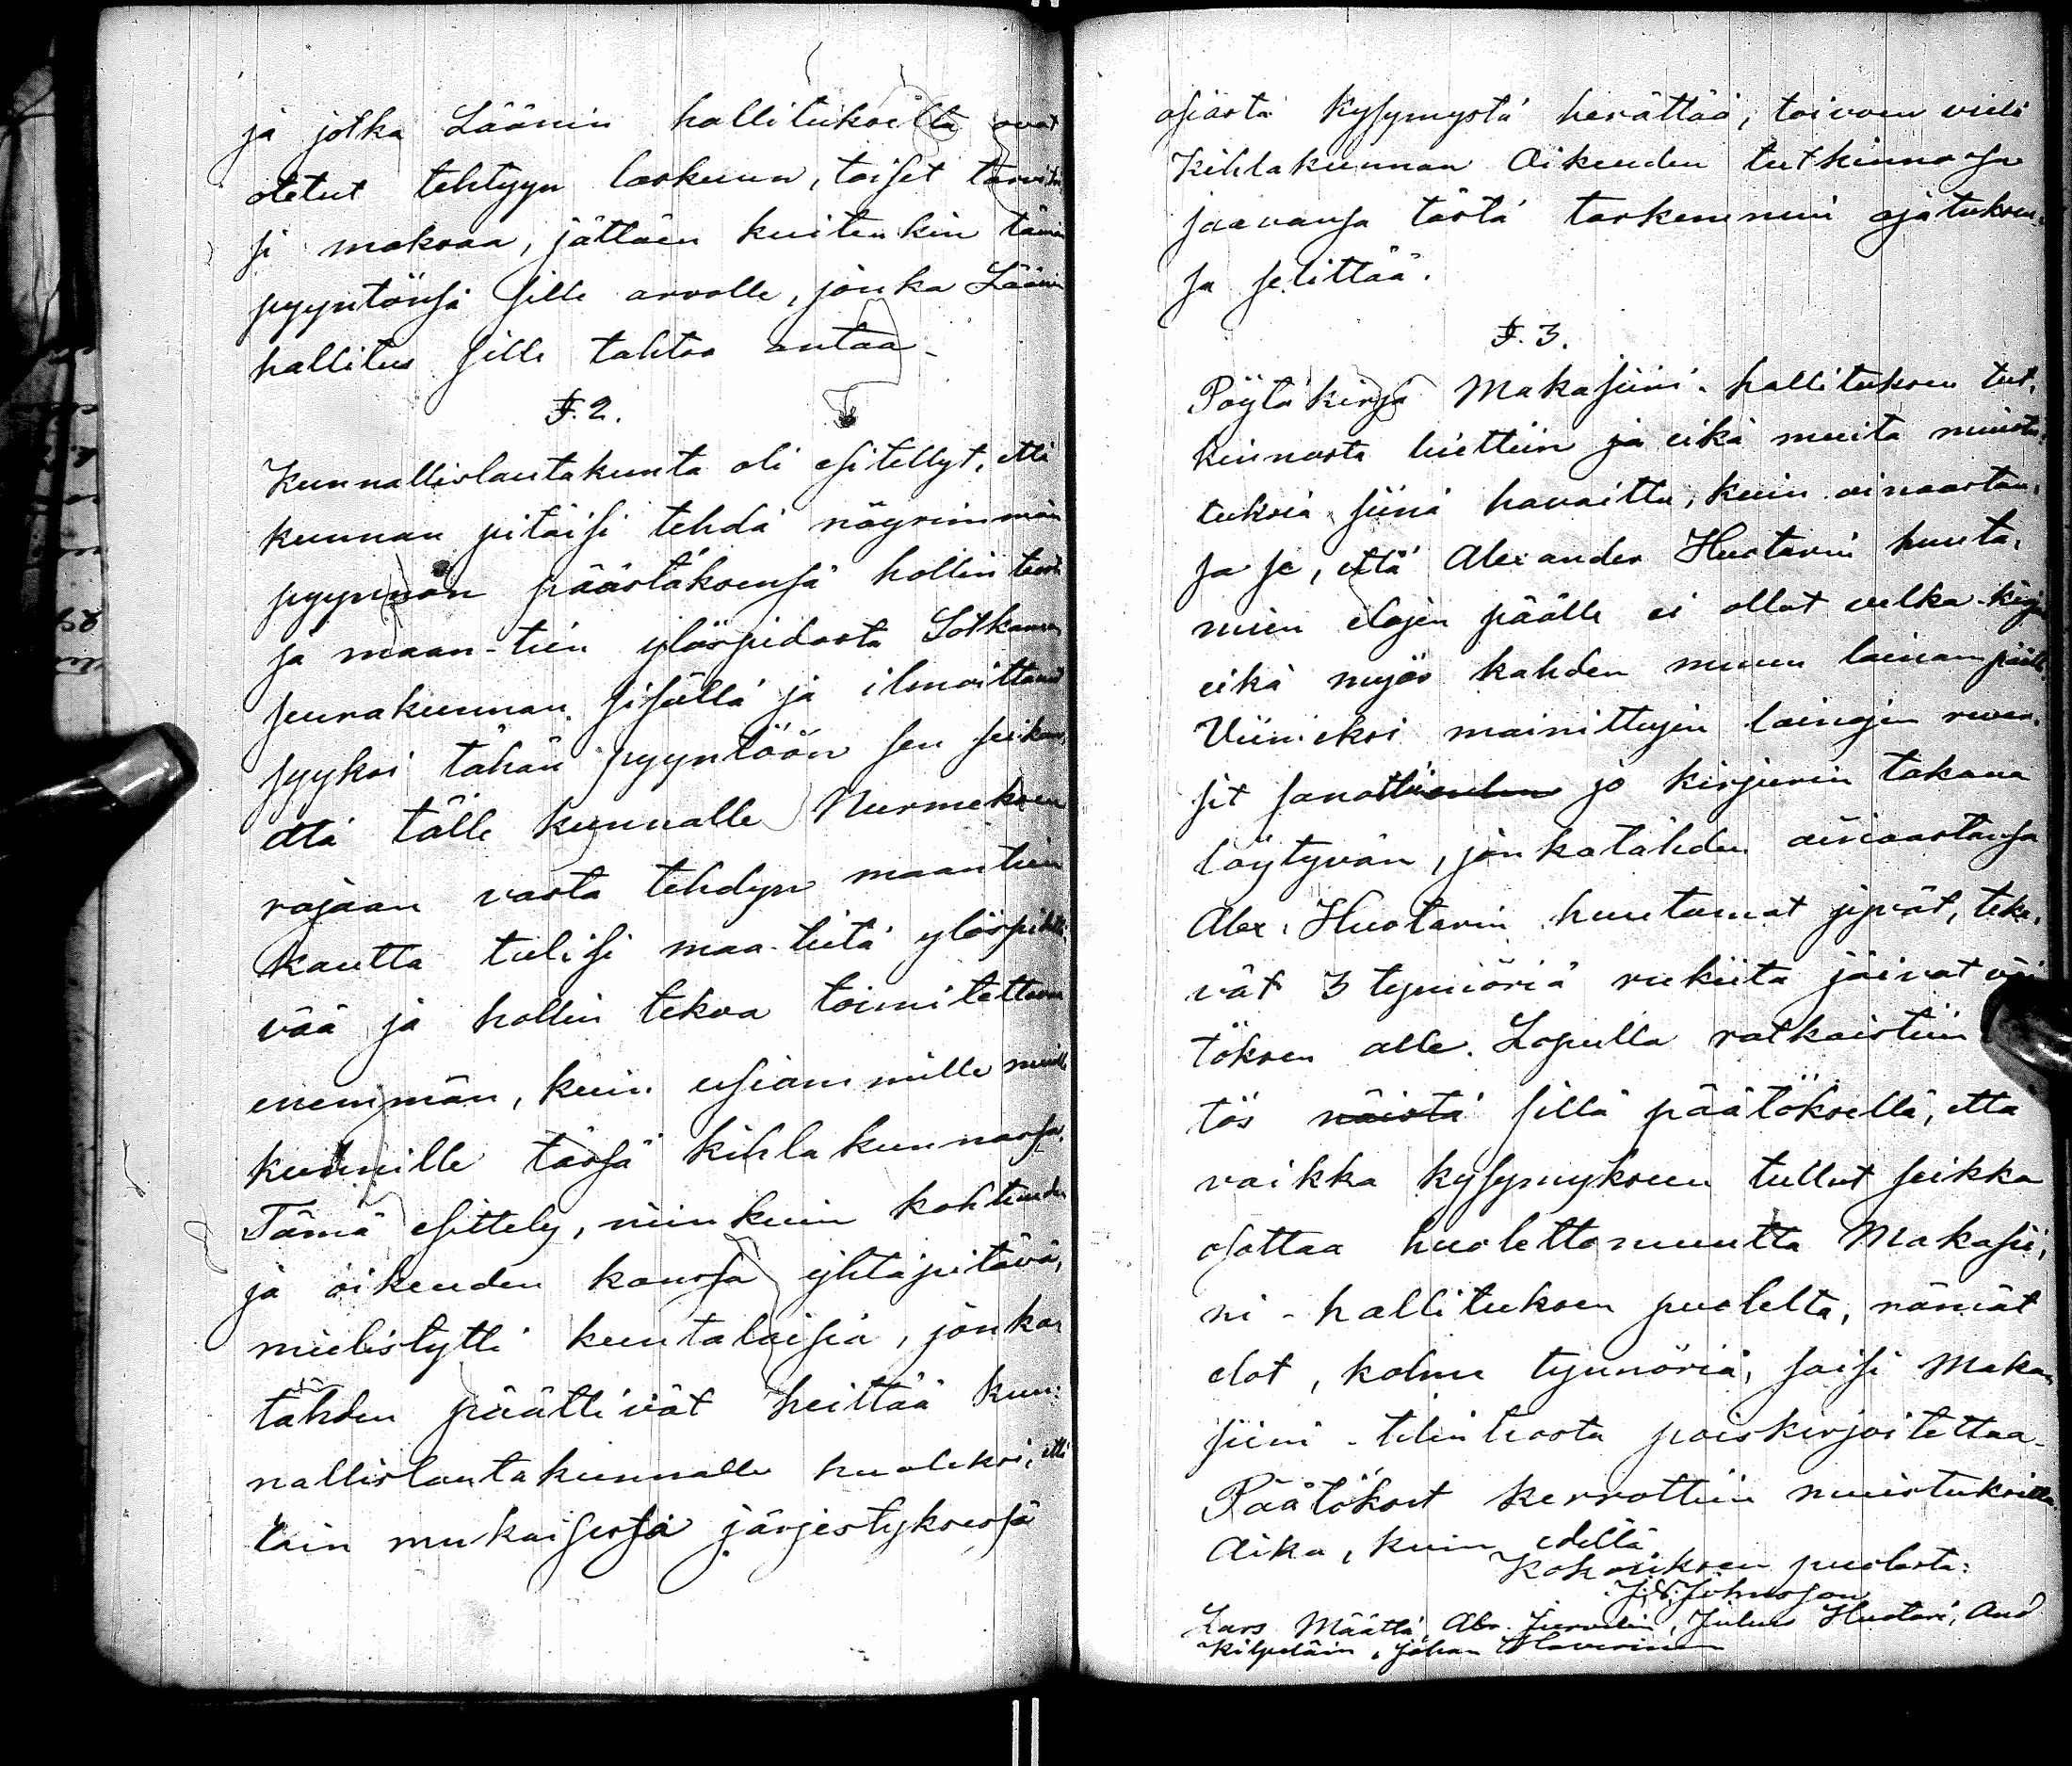 ja jotka Läänin hallituksella ovat
otetut tehtyyn laskuun, toiset tarvitsi
si maksaa, jättäen kuitenkin tämän
pyyntönsä sille arvolle, jonka Läänin
hallitus sille tahtoo antaa.
§. 2.
Kunnallislautakunta oli esitellyt, että
kunnan pitäisi tehdä nöyrimmän
pyynnön päästäksensä hollin teosta
ja maan-tien ylöspidosta Sotkamon
seurakunnan sisällä ja ilmoittanut
syyksi tähän pyyntöön sen seikan,
että tälle kunnalle Nurmeksen
rajaan vasta tehdyn maantien
kautta tulisi maa-tietä ylöspidettä
vää ja hollin tekoa toimitettavaa
enemmän, kuin usiammille muille
kunnille tässä kihlakunnassa.
Tämä esittely, niinkuin kohtuuden
ja oikeuden kanssa yhtäpitävä,
mielistytti kuntalaisia, jonka
tähden päättivät heittää kun:
nallislautakunnalle huoleksi, että
lain mukaisessa järjestyksessä
asiasta kysymystä herättää, toivoen vielä
Kihlakunnan Oikeuden tutkinnossa
saavansa tästä tarkemmin ajatuksen:
sa selittää.
§. 3.
Pöytäkirja Makasiini-hallituksen tut,
kinnosta luettiin ja eikä muita muistu,
tuksia siinä havaittu, kuin ainoastan,
sa se, että Alexander Huotarin huuta,
mien elojen päälle ei ollot velka-kirja
eikä myös kahden muun lainan päälle.
Viimeksi mainittujen lainojen rever,
sit sanottiin jo kirjurin takana
löytyvän, jonkatähden ainoastansa
Alex. Huotarin huutamat jyvät, teke,
vät 3 tynnöriä rukiita jäivät väi
töksen alle. Lopulla ratkaistiin
tös näistä sillä päätöksellä, että
vaikka kysymykseen tullut seikka
osottaa huolettomuutta Makasii,
ni-hallituksen puolelta, nämät
elot, kolme tynnöriä, saisi Maka
siini-tilin teosta poiskirjoitettaa.
Päätökset kerrottiin muistuksilla.
Aika, kuin edellä.
Kokouksen puolesta:
J. Johnsson
Lars Määttä, Abr. Julius Huotari, And
Kilpeläin, Johan